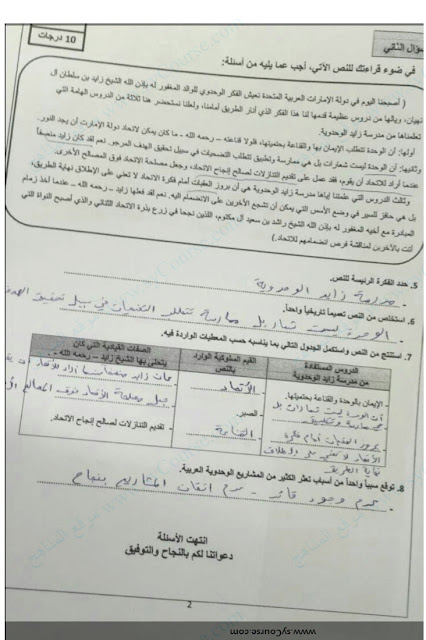 السؤال الثاني
10 درجات
في ضوء قراءتك للنص الآتي، أجب عما يليه من أسئلة:
( أصبحنا اليوم في دولة الإمارات العربية المتحدة نعيش الفكر الوحدوي للوالد المغفور له بإذن الله الشيخ زايد بن سلطان آل
نهيان، ويالها من دروس عظيمة قدمها لنا هذا الفكر الذي أنار الطريق أمامنا، ولعلنا نستحضر هنا ثلاثة من الدروس الهامة التي
تعلمناها من مدرسة زايد الوحدوية.
أولها: أن الوحدة تتطلب الإيمان بها والقناعة بحتميتها، فلولا قناعته – رحمه الله – ما كان يمكن لاتحاد دولة الإمارات أن يجد النور.
وثانيها: أن الوحدة ليست شعارات بل هي ممارسة وتطبيق تتطلب التضحيات في سبيل تحقيق الهدف المرجو. نعم لقد كان زايد منصفاً
عندما أراد للاتحاد أن يقوم، فقد عمل على تقديم التنازلات لصالح إنجاح الاتحاد، وجعل مصلحة الاتحاد فوق المصالح الأخرى.
وثالث الدروس التي علمتنا إياها مدرسة زايد الوحدوية هي أن بروز العقبات أمام فكرة الاتحاد لا تعني على الإطلاق نهاية الطريق،
بل هي حافز للسير في وضع الأسس التي يمكن أن تشجع الآخرين على الانضمام اليه. نعم لقد فعلها زايد – رحمه الله – عندما أخذ زمام
المبادرة مع أخيه المغفور له بإذن الله الشيخ راشد بن سعيد آل مكتوم، الذين نجحا في زرع بذرة الاتحاد الثنائي والذي أصبح النواة التي
أتت بالآخرين لمناقشة فرص انضمامهم للاتحاد.)
5. حدد الفكرة الرئيسة للنص.
مدرسة زايد الوحدوية
6. استخلص من النص تعميماً تاريخياً واحداً.
الوحدة ليست شعارا بل ممارسة تتطلب التضحيات في سبيل تحقيق الهدف
7. استنتج من النص واستكمل الجدول التالي بما يناسبه حسب المعطيات الواردة فيه.
الدروس المستفادة من مدرسة زايد الوحدوية
القيم السلوكية الوارد بالنص
الصفات القيادية التي كان يتحلى بها الشيخ زايد – رحمه الله –
- الإيمان بالوحدة والقناعة بحتميتها.
أن الوحدة ليست شعارات بل هي ممارسة وتطبيق
بروز العقبات أمام فكرة الاتحاد لا تعني على الإطلاق نهاية الطريق
- الاتحاد
- الصبر.
- القناعة
كان زايد منصفا عندما أراد الاتحاد أن يقوم
جعل مصلحة الاتحاد فوق المصالح الأخرى
- تقديم التنازلات لصالح إنجاح الاتحاد.
8. توقع سبباً واحداً من أسباب تعثر الكثير من المشاريع الوحدوية العربية.
عدم وجود قائد - عدم اتقان المشاريع بنجاح
انتهت الأسئلة
دعواتنا لكم بالنجاح والتوفيق
2
www.syCourse.com